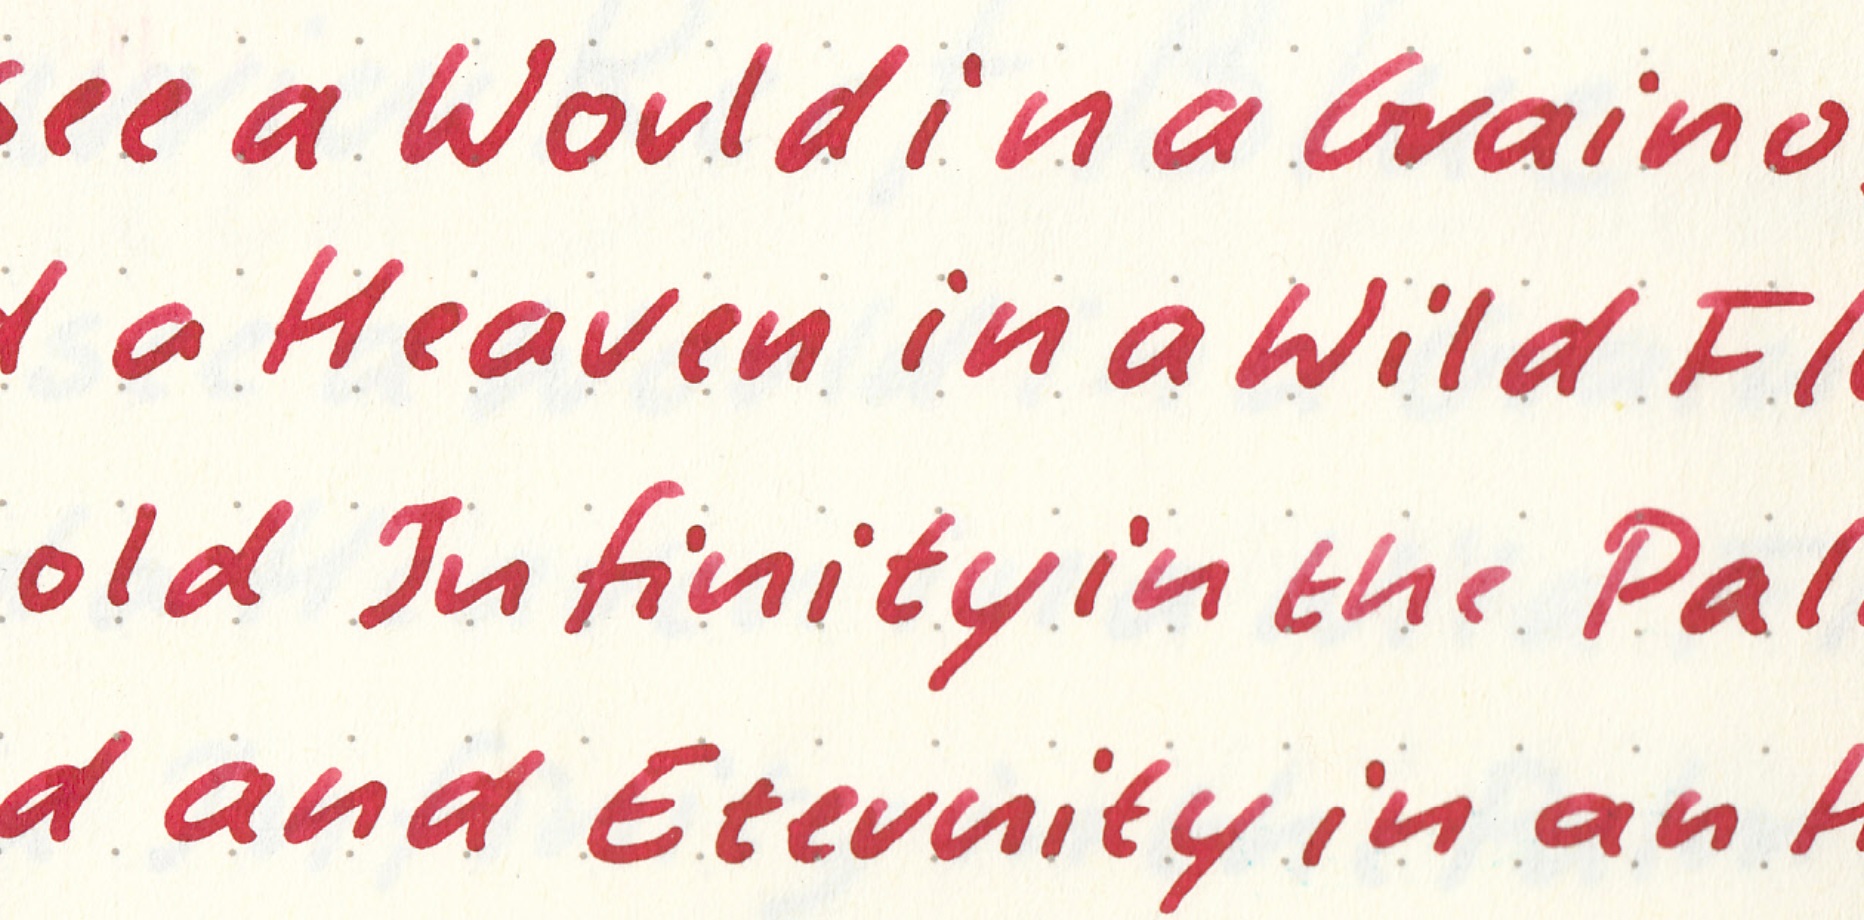 see a World in a Grain o
d a Heaven in a Wild Fl
old Infinity in the Pal
d and Eternity in an H